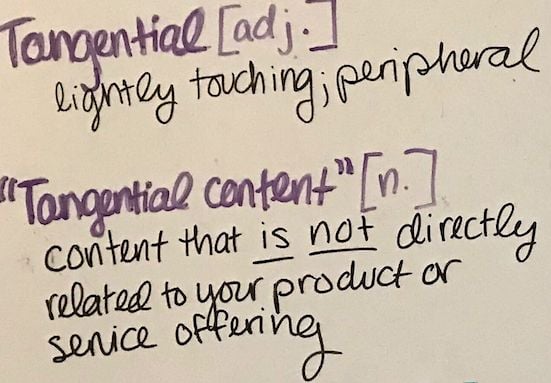 Tangential [adj.]
lightly touching; peripheral
"Tangential content" [n.]
content that is not directly
related to your product or
service offering